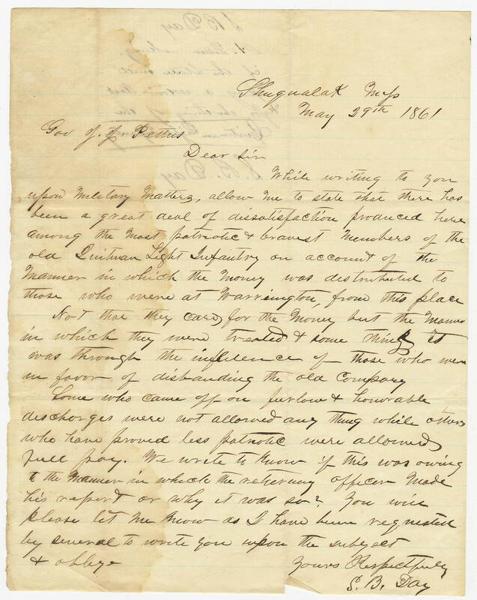 Shuqualak Miss
May 29th 1861
Gov J. J. Pettus
Dear Sir
While writing to you
upon Military Matters, allow me to state that there has
been a great deal of dissatisfaction produced here
among the most patriotic & bravest Members of the
old Quitman Light Infantry on account of the
Manner in which the Money was distributed to
those who were at Warrington, from this place
Not that they care, for the Money but the Manner
in which they were treated & some think it
was through the influence of those who were
in favor of disbanding the old Company
Some who came off on furlow & honorable
discharges were not allowed any thing while others
who have proved less patriotic were allowed
full pay. We write to know if this was owing
to the Manner in which the retiring officer made
his report or why it was so? You will
please let me know as I have been requested
by several to write you upon the subject
& oblige Yours Respectfully
S. B. Day